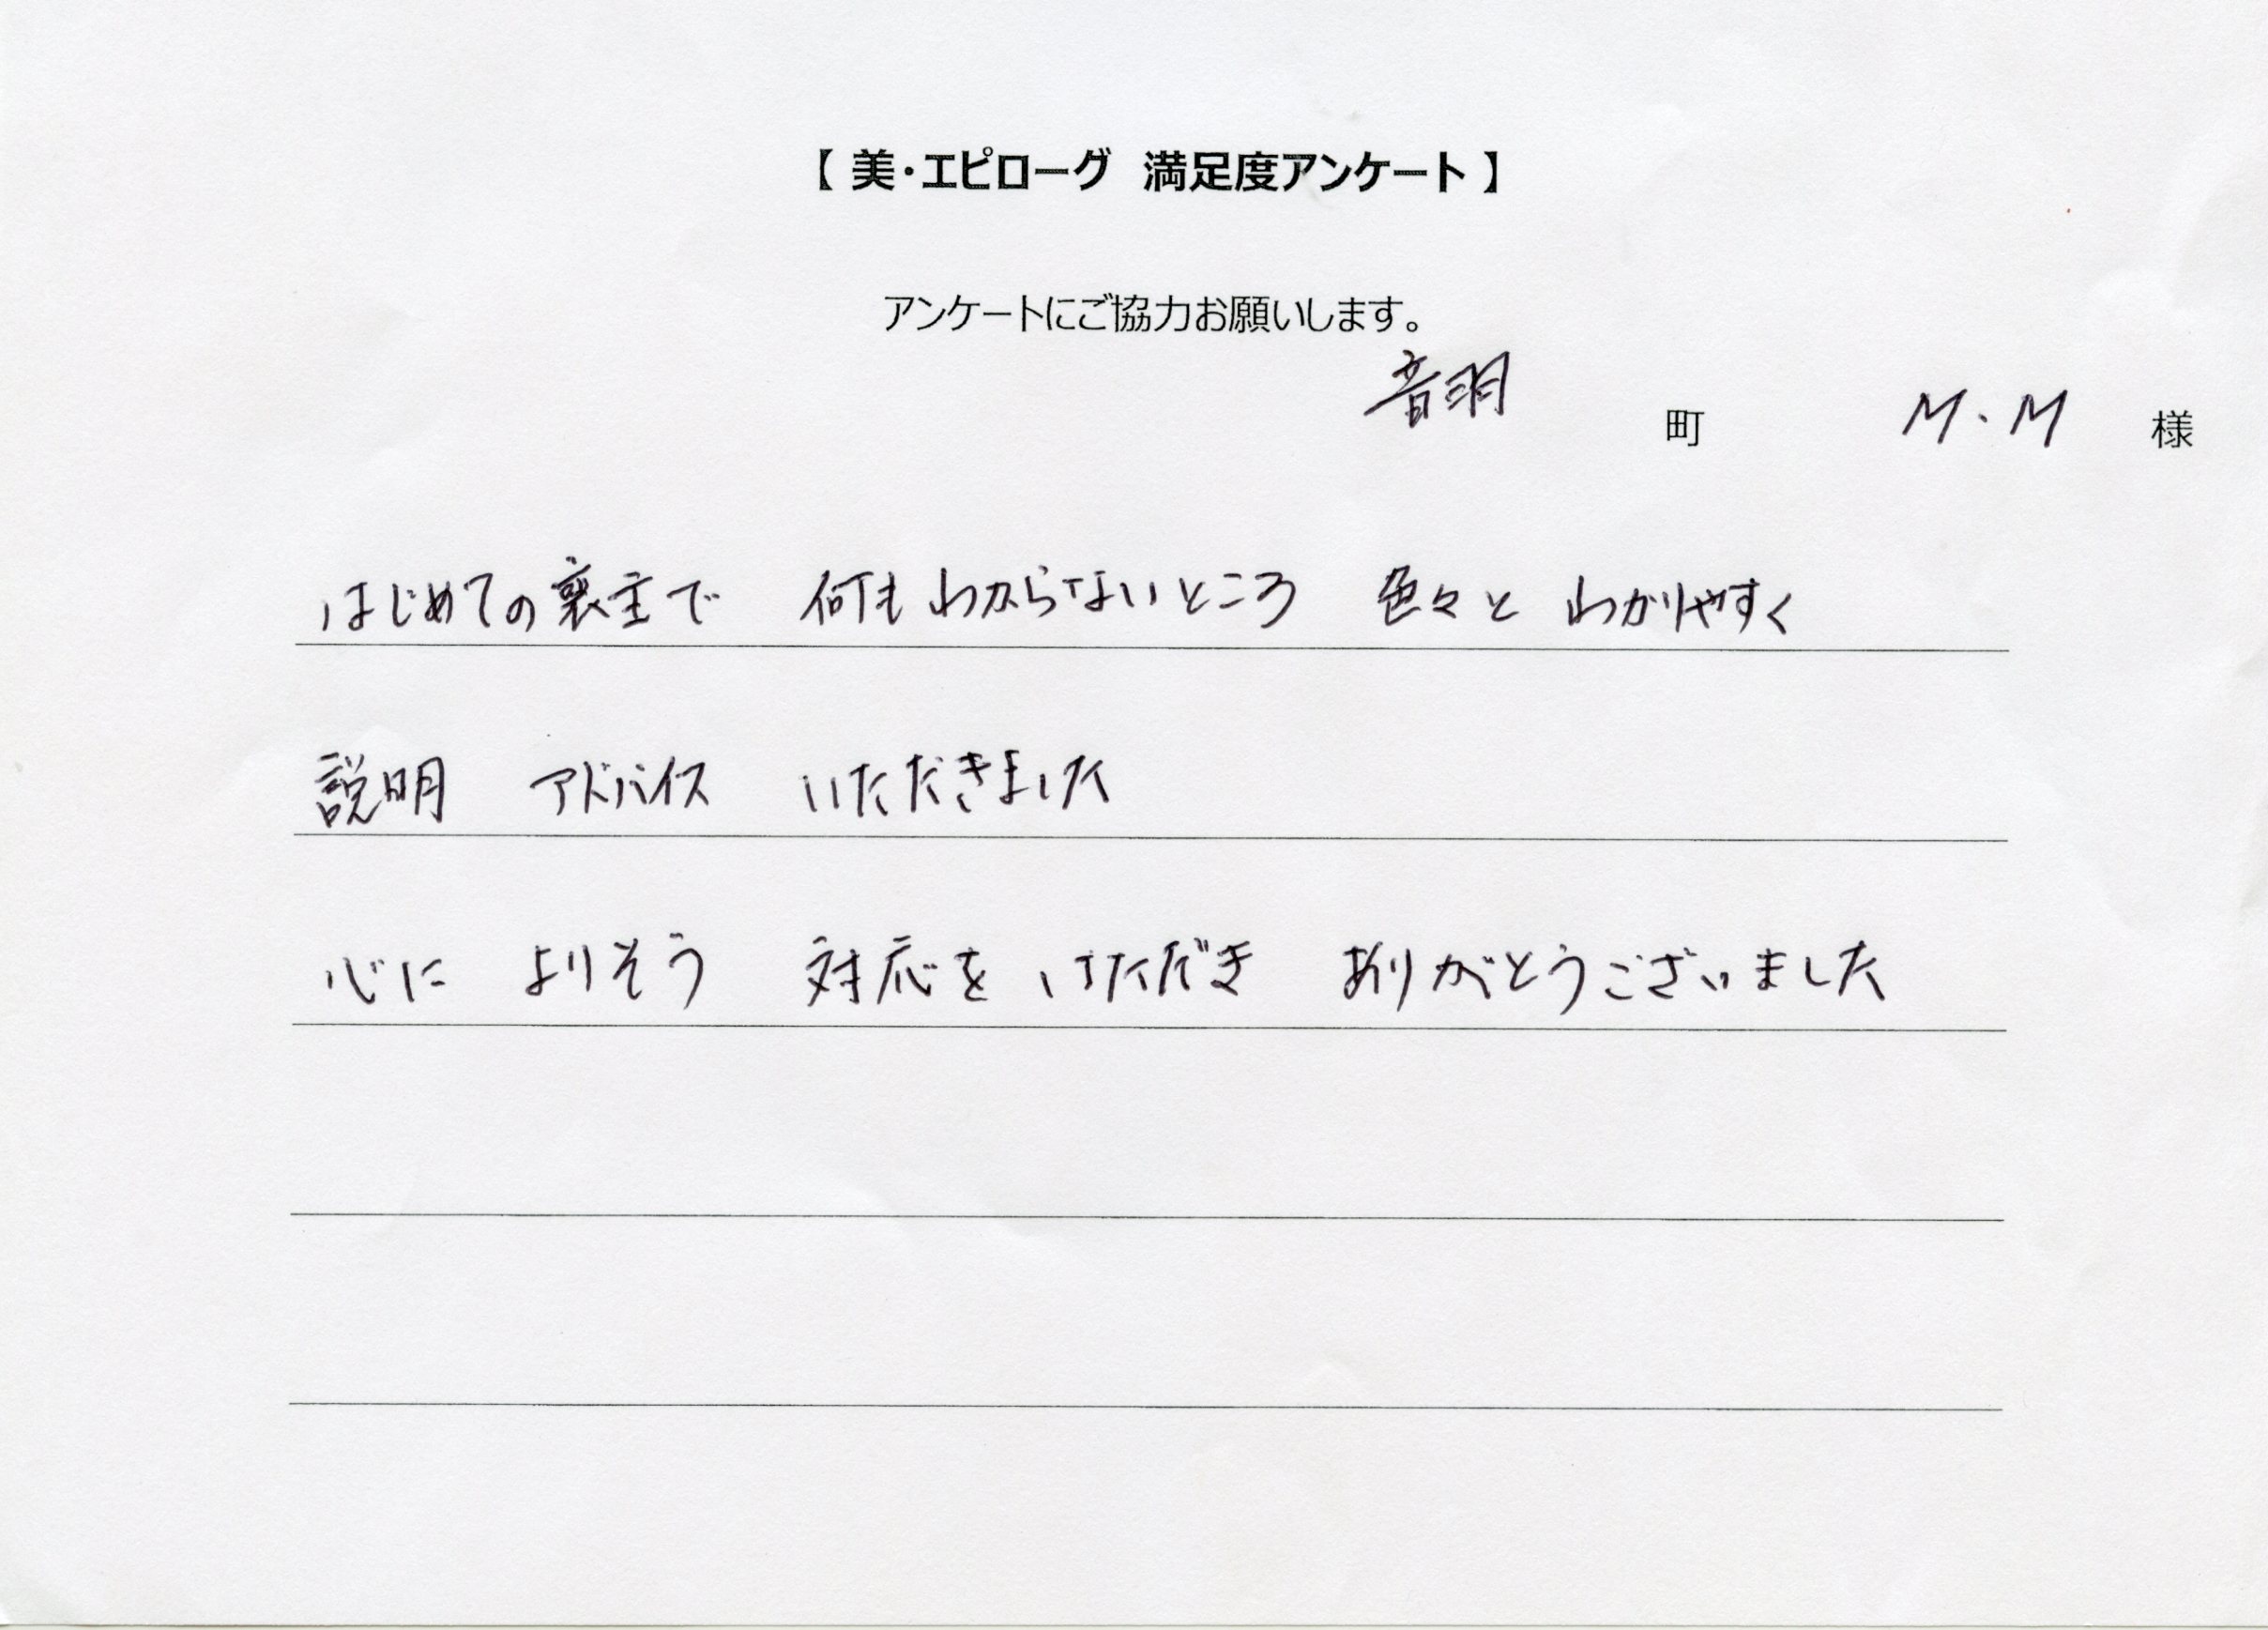 【 美・エピローグ　満足度アンケート 】
アンケートにご協力お願いします。
音羽 町 M・M 様
はじめての喪主で 何もわからないところ 色々と わかりやすく
説明 アドバイス いただきました
心に よりそう 対応を いただき ありがとうございました